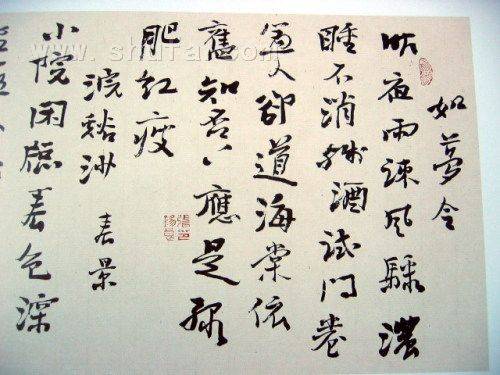 如夢令
昨夜雨疎風驟濃
睡不消殘酒試問卷
簾人卻道海棠依
舊知否〻應是綠
肥紅瘦
浣谿沙 春景
小院閑窗春色深